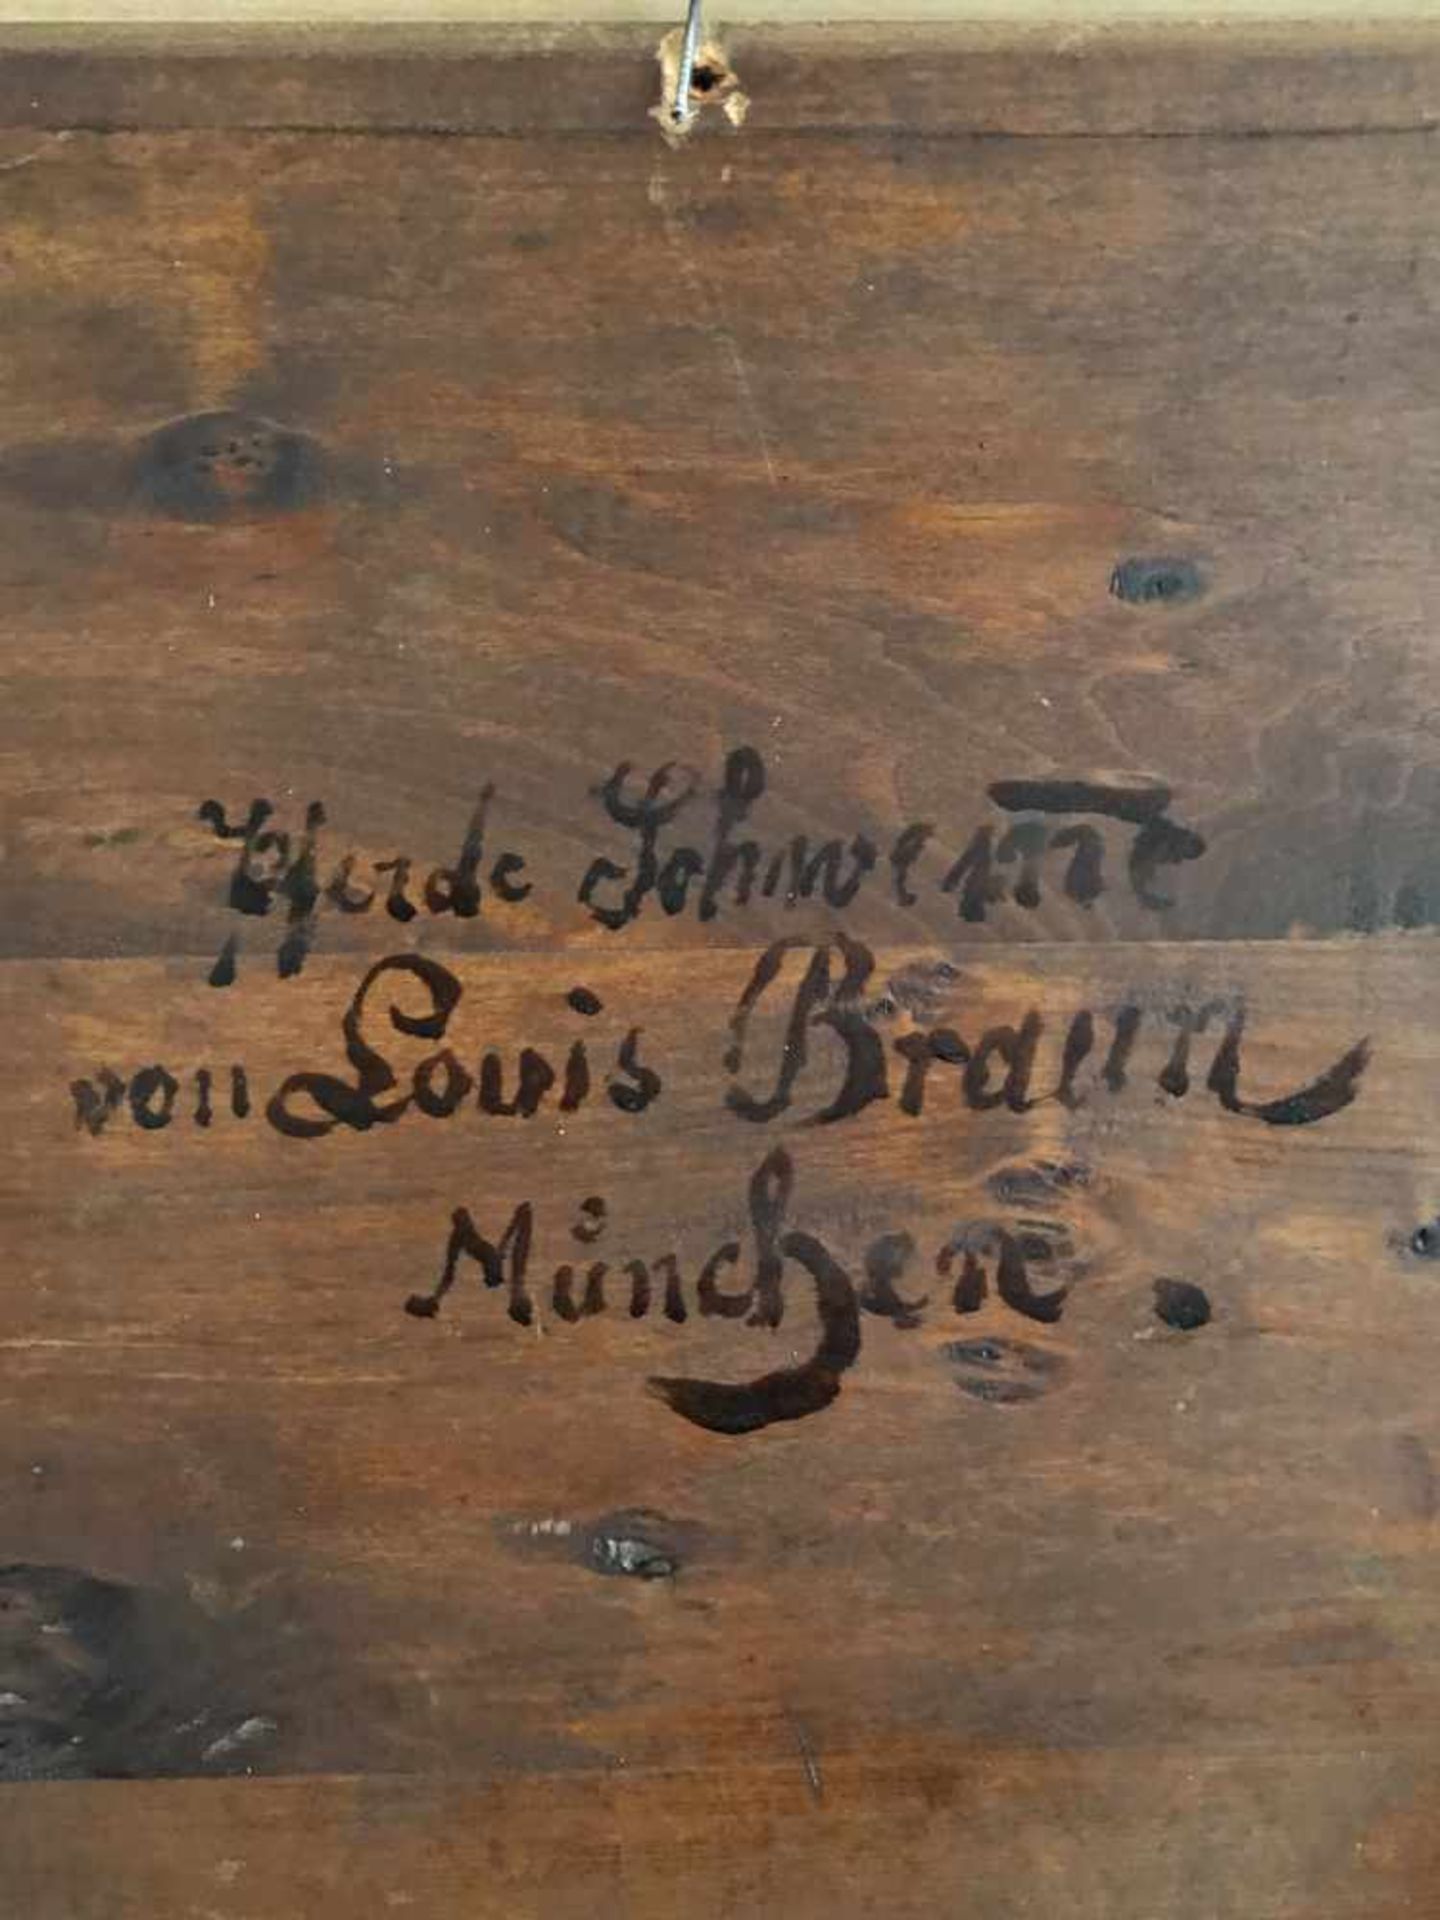 Pferde Schwem̅e
von Louis Braun
München.